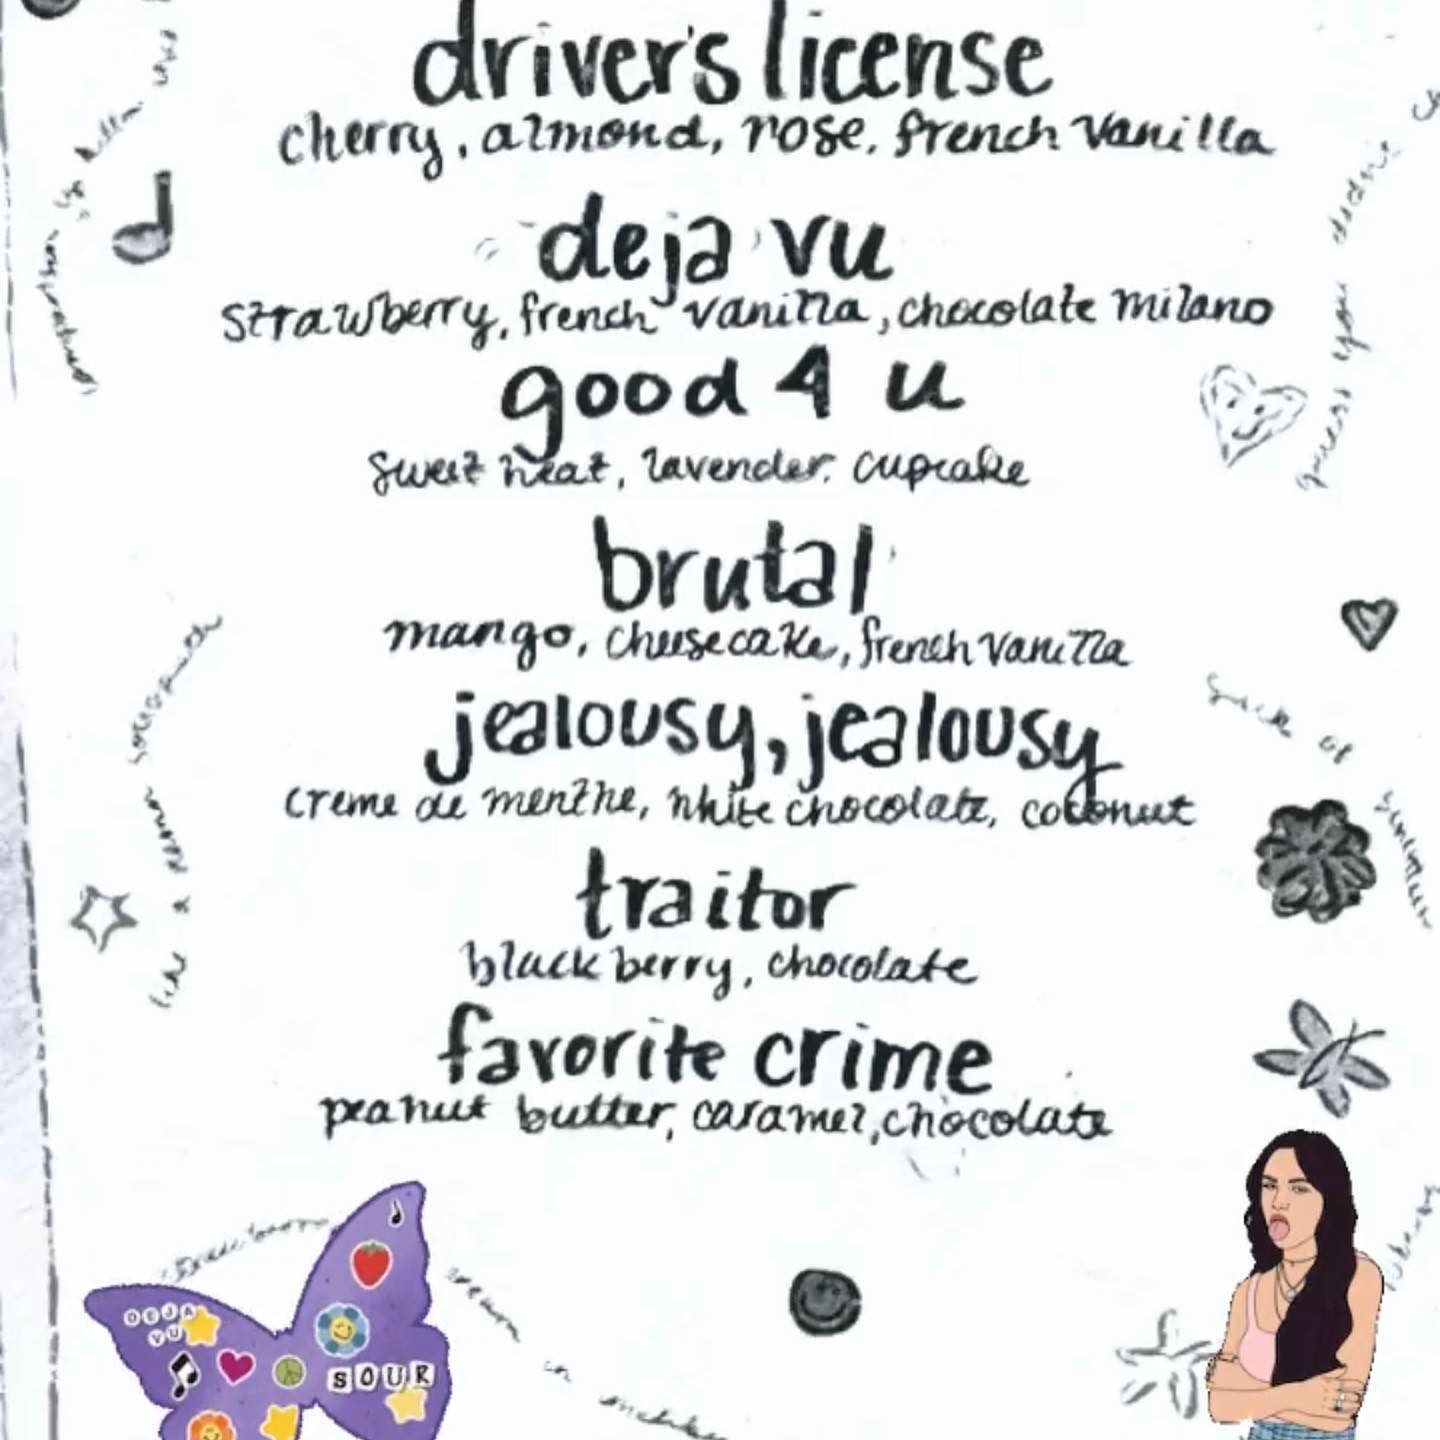 driver's license
cherry, almond, rose, french vanilla
deja vu
strawberry, french vanilla, chocolate milano
good 4 u
sweet heat, lavender, cupcake
brutal
mango, cheesecake, french vanilla
jealousy, jealousy
creme de menthe, white chocolate, coconut
traitor
blackberry, chocolate
favorite crime
peanut butter, caramel, chocolate
guess you didn't
like a damn sociopath
DEJA
VU
SOUR